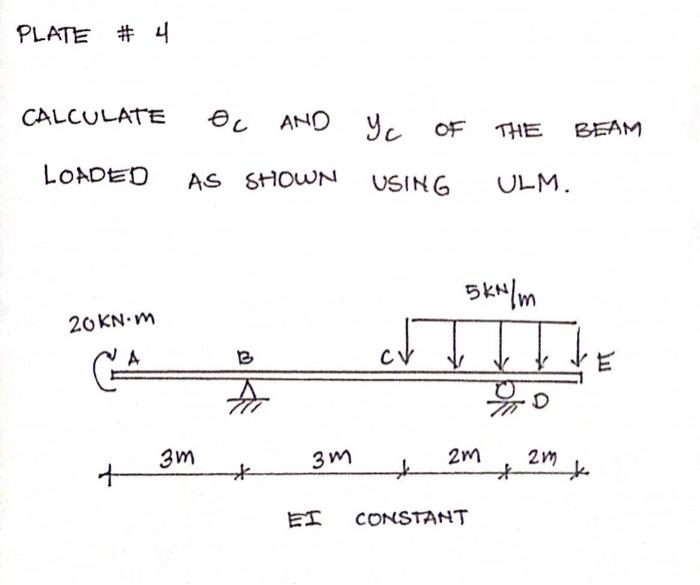 PLATE # 4
CALCULATE θC AND yC OF THE BEAM
LOADED AS SHOWN USING ULM.
5KN/m
20KN·m
A B C E
D
3m 3m 2m 2m
EI CONSTANT